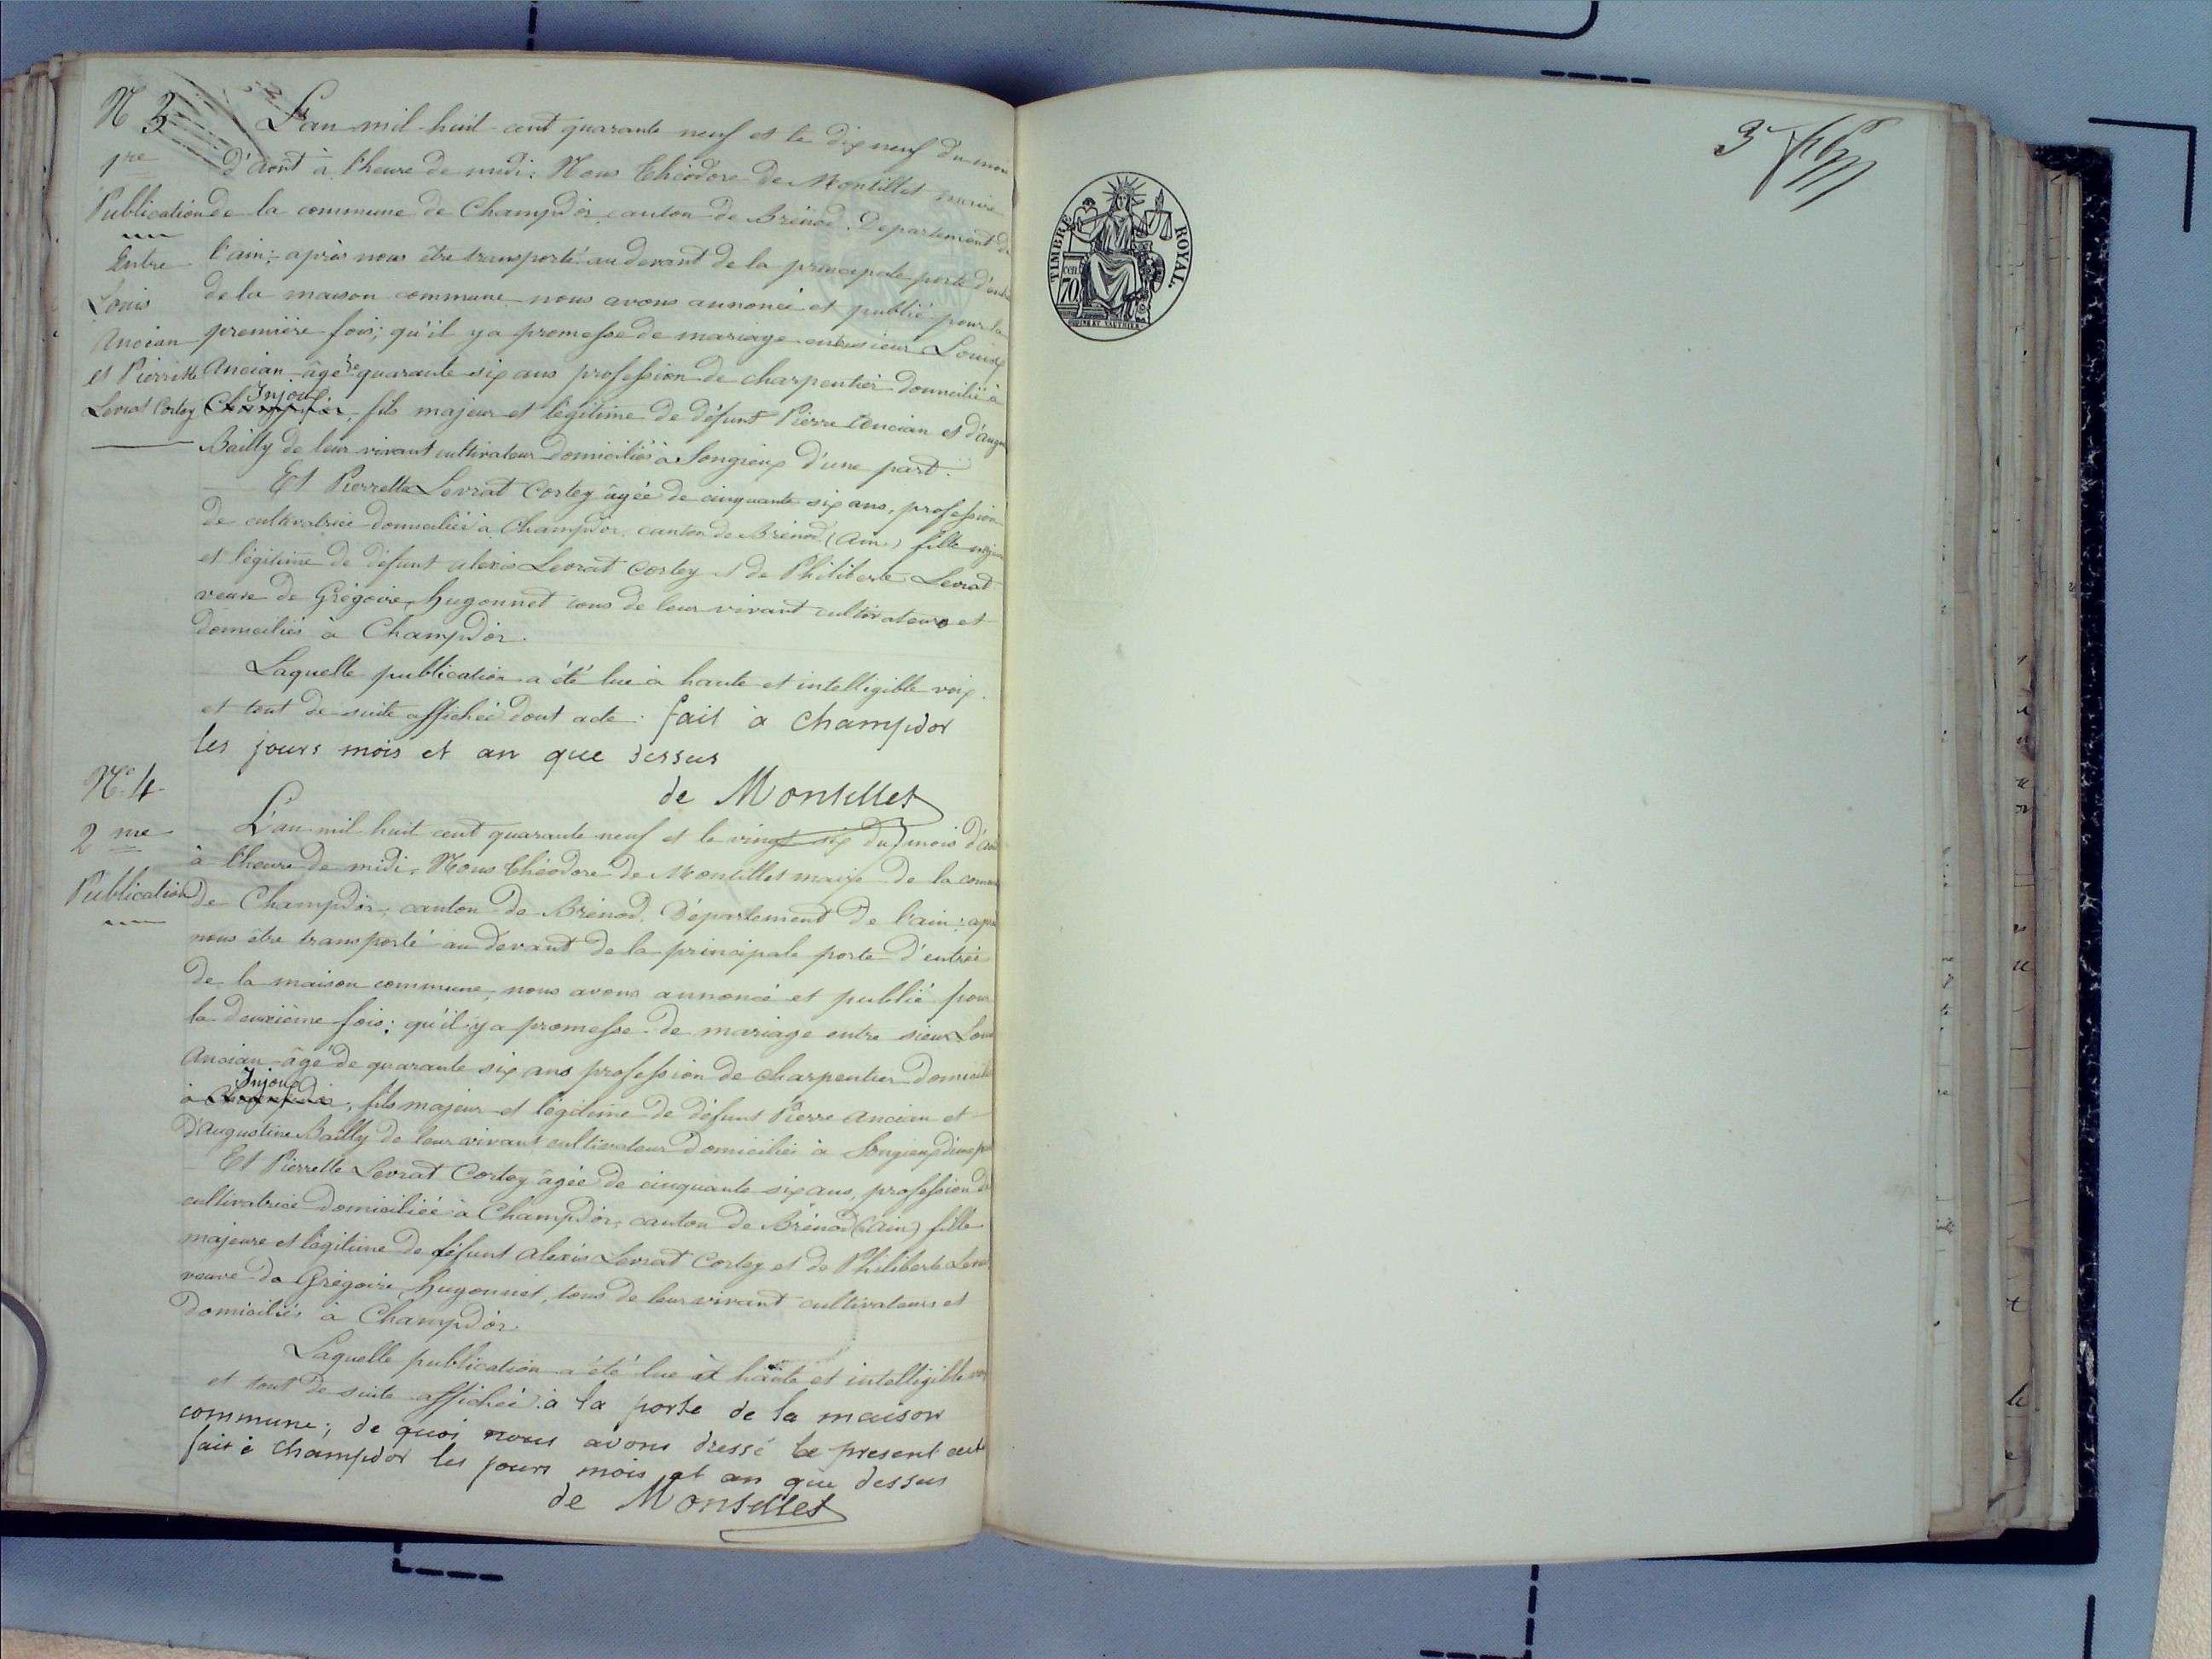 N 3
1re
Publication
Entre
Louis
Ancian
et Pierrette
Levrat Cortey
L'an mil huit cent quarante neuf et le dix neuf du mois
d'Aout à l'heure de midi. Nous Théodore de Montillet maire
de la commune de Champdôr, canton de Brénod. Departement de
l'ain; après nous être transporté au devant de la principale porte d'entrée
de la maison commune nous avons annoncé et publié pour la
première fois; qu'il y a promesse de mariage entre sieur Louis
Ancian âgé de quarante six ans profession de charpentier domicilié à
Injoux
Champdôr, fils majeur et légitime de défunt Pierre Ancian et d'augus
Bailly de leur vivant cultivateur domiciliés à Songieux d'une part.
Et Pierrette Levrat Cortey âgée de cinquante six ans, profession
de cultivatrice domiciliée à Champdôr, canton de Brénod (Ain) fille majeure
et légitime de défunt alexis Levrat Cortey et de Philiberte Levrat
veuve de Grégoire Hugonnet tous de leur vivant cultivateurs et
domiciliés à Champdôr.
Laquelle publication a été lue à haute et intelligible voix.
et tout de suite affichée dont acte. fait à champdor
les jours mois et an que dessus
de Montillet
No 4
2me
Publication
L'an mil huit cent quarante neuf et le vingt six du mois d'août
à l'heure de midi. Nous Théodore de Montillet maire de la comm
de Champdôr, canton de Brénod. Département de l'ain: aprè
nous être transporté au devant de la principale porte d'entrée
de la maison commune, nous avons annoncé et publié pour
la deuxième fois; qu'il y a promesse de mariage entre sieur Louis
Ancian âgé de quarante six ans profession de charpentier domicilié
Injoux
à Champdôr, fils majeur et légitime de défunt Pierre Ancian et
d'Augustine Bailly de leur vivant cultivateur domiciliés à Songieux d'une p
Et Pierrette Levrat Cortey âgée de cinquante six ans, profession de
cultivatrice domiciliée à Champdôr, canton de Brénod (Ain) fille
majeure et légitime de défunt Alexis Levrat Cortey et de Philiberte Lev
veuve de Grégoire Hugonnet, tous de leur vivant cultivateurs et
domiciliés à Champdôr.
Laquelle publication a été lue à haute et intelligible voix
et tout de suite affichée à la porte de la maison
commune; de quoi nous avons dressé le present acte
fait à champdor les jours mois et an que dessus
de Montillet
3
TIMBRE ROYAL.
cen
70